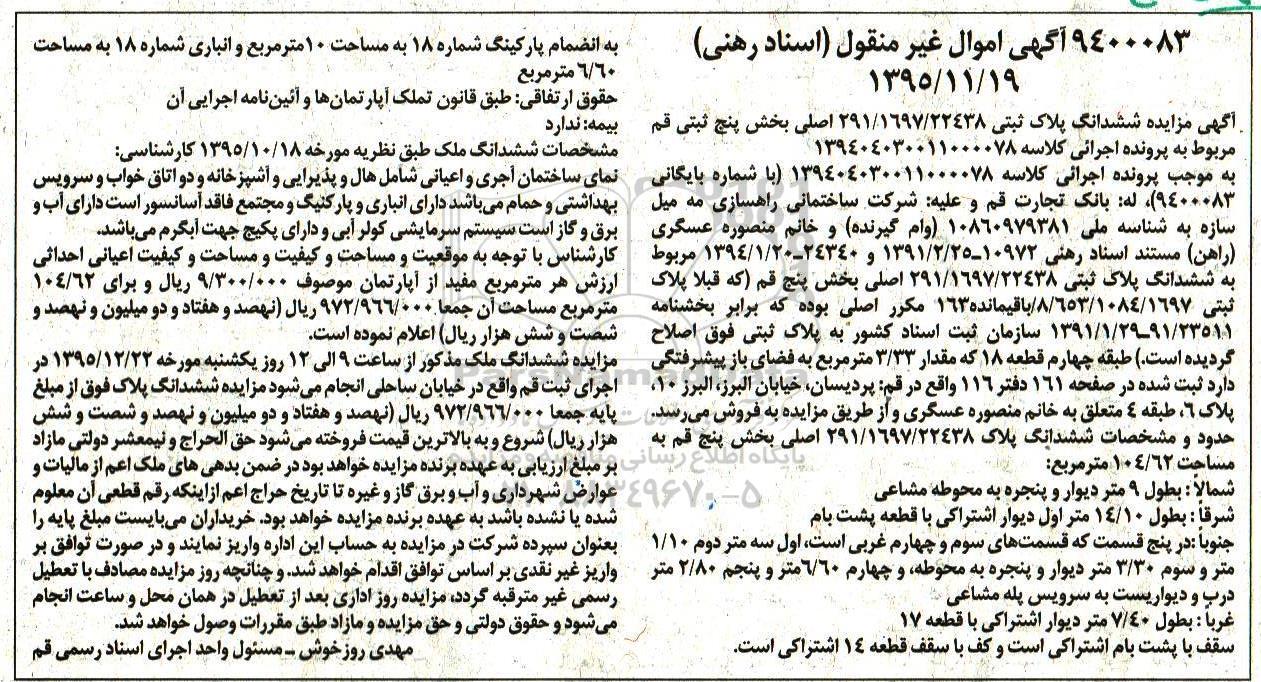 ۹۴۰۰۰۸۳ آگهی اموال غیر منقول (اسناد رهنی)
۱۳۹۵/۱۱/۱۹
آگهی مزایده ششدانگ پلاک ثبتی ۲۹۱/۱۶۹۷/۲۲۴۳۸ اصلی بخش پنج ثبتی قم
مربوط به پرونده اجرائی کلاسه ۱۳۹۴۰۴۰۳۰۰۱۱۰۰۰۰۷۸
به موجب پرونده اجرائی کلاسه ۱۳۹۴۰۴۰۳۰۰۱۱۰۰۰۰۷۸ (با شماره بایگانی
۹۴۰۰۰۸۳)، له: بانک تجارت قم و علیه: شرکت ساختمانی راهسازی مه میل
سازه به شناسه ملی ۱۰۸۶۰۹۷۹۳۸۱ (وام گیرنده) و خانم منصوره عسگری
(راهن) مستند اسناد رهنی ۱۰۹۷۲-۱۳۹۱/۲/۲۵ و ۲۴۳۴۰-۱۳۹۴/۱/۲۰ مربوط
به ششدانگ پلاک ثبتی ۲۹۱/۱۶۹۷/۲۲۴۳۸ اصلی بخش پنج قم (که قبلا پلاک
ثبتی ۸/۶۵۳/۱۰۸۴/۱۶۹۷/باقیمانده۱۶۳ مکرر اصلی بوده که برابر بخشنامه
۹۱/۲۳۵۱۱-۱۳۹۱/۱/۲۹ سازمان ثبت اسناد کشور به پلاک ثبتی فوق اصلاح
گردیده است.) طبقه چهارم قطعه ۱۸ که مقدار ۳/۳۳ مترمربع به فضای باز پیشرفتگی
دارد ثبت شده در صفحه ۱۶۱ دفتر ۱۱۶ واقع در قم: پردیسان، خیابان البرز، البرز ۱۰،
پلاک ۶، طبقه ۴ متعلق به خانم منصوره عسگری و از طریق مزایده به فروش می‌رسد.
حدود و مشخصات ششدانگ پلاک ۲۹۱/۱۶۹۷/۲۲۴۳۸ اصلی بخش پنج قم به
مساحت ۱۰۴/۶۲ مترمربع:
شمالاً : بطول ۹ متر دیوار و پنجره به محوطه مشاعی
شرقاً : بطول ۱۴/۱۰ متر اول دیوار اشتراکی با قطعه پشت بام
جنوباً :در پنج قسمت که قسمت‌های سوم و چهارم غربی است، اول سه متر دوم ۱/۱۰
متر و سوم ۳/۳۰ متر دیوار و پنجره به محوطه، و چهارم ۶/۶۰متر و پنجم ۲/۸۰ متر
درب و دیواریست به سرویس پله مشاعی
غرباً : بطول ۷/۴۰ متر دیوار اشتراکی با قطعه ۱۷
سقف با پشت بام اشتراکی است و کف با سقف قطعه ۱۴ اشتراکی است.
به انضمام پارکینگ شماره ۱۸ به مساحت ۱۰مترمربع و انباری شماره ۱۸ به مساحت
۶/۶۰ مترمربع
حقوق ارتفاقی: طبق قانون تملک آپارتمان‌ها و آئین‌نامه اجرایی آن
بیمه: ندارد
مشخصات ششدانگ ملک طبق نظریه مورخه ۱۳۹۵/۱۰/۱۸ کارشناسی:
نمای ساختمان آجری و اعیانی شامل هال و پذیرایی و آشپزخانه و دو اتاق خواب و سرویس
بهداشتی و حمام می‌باشد دارای انباری و پارکنیگ و مجتمع فاقد آسانسور است دارای آب و
برق و گاز است سیستم سرمایشی کولر آبی و دارای پکیج جهت آبگرم می‌باشد.
کارشناس با توجه به موقعیت و مساحت و کیفیت و مساحت و کیفیت اعیانی احداثی
ارزش هر مترمربع مفید از آپارتمان موصوف ۹/۳۰۰/۰۰۰ ریال و برای ۱۰۴/۶۲
مترمربع مساحت آن جمعا ۹۷۲/۹۶۶/۰۰۰ ریال (نهصد و هفتاد و دو میلیون و نهصد و
شصت و شش هزار ریال) اعلام نموده است.
مزایده ششدانگ ملک مذکور از ساعت ۹ الی ۱۲ روز یکشنبه مورخه ۱۳۹۵/۱۲/۲۲ در
اجرای ثبت قم واقع در خیابان ساحلی انجام می‌شود مزایده ششدانگ پلاک فوق از مبلغ
پایه جمعا ۹۷۲/۹۶۶/۰۰۰ ریال (نهصد و هفتاد و دو میلیون و نهصد و شصت و شش
هزار ریال) شروع و به بالاترین قیمت فروخته می‌شود حق الحراج و نیمعشر دولتی مازاد
بر مبلغ ارزیابی به عهده برنده مزایده خواهد بود در ضمن بدهی های ملک اعم از مالیات و
عوارض شهرداری و آب و برق گاز و غیره تا تاریخ حراج اعم ازاینکه رقم قطعی آن معلوم
شده یا نشده باشد به عهده برنده مزایده خواهد بود. خریداران می‌بایست مبلغ پایه را
بعنوان سپرده شرکت در مزایده به حساب این اداره واریز نمایند و در صورت توافق بر
واریز غیر نقدی بر اساس توافق اقدام خواهد شد. و چنانچه روز مزایده مصادف با تعطیل
رسمی غیر مترقبه گردد، مزایده روز اداری بعد از تعطیل در همان محل و ساعت انجام
می‌شود و حقوق دولتی و حق مزایده و مازاد طبق مقررات وصول خواهد شد.
مهدی روزخوش - مسئول واحد اجرای اسناد رسمی قم
ParsNamadData
پایگاه اطلاع رسانی مناقصه و مزایده